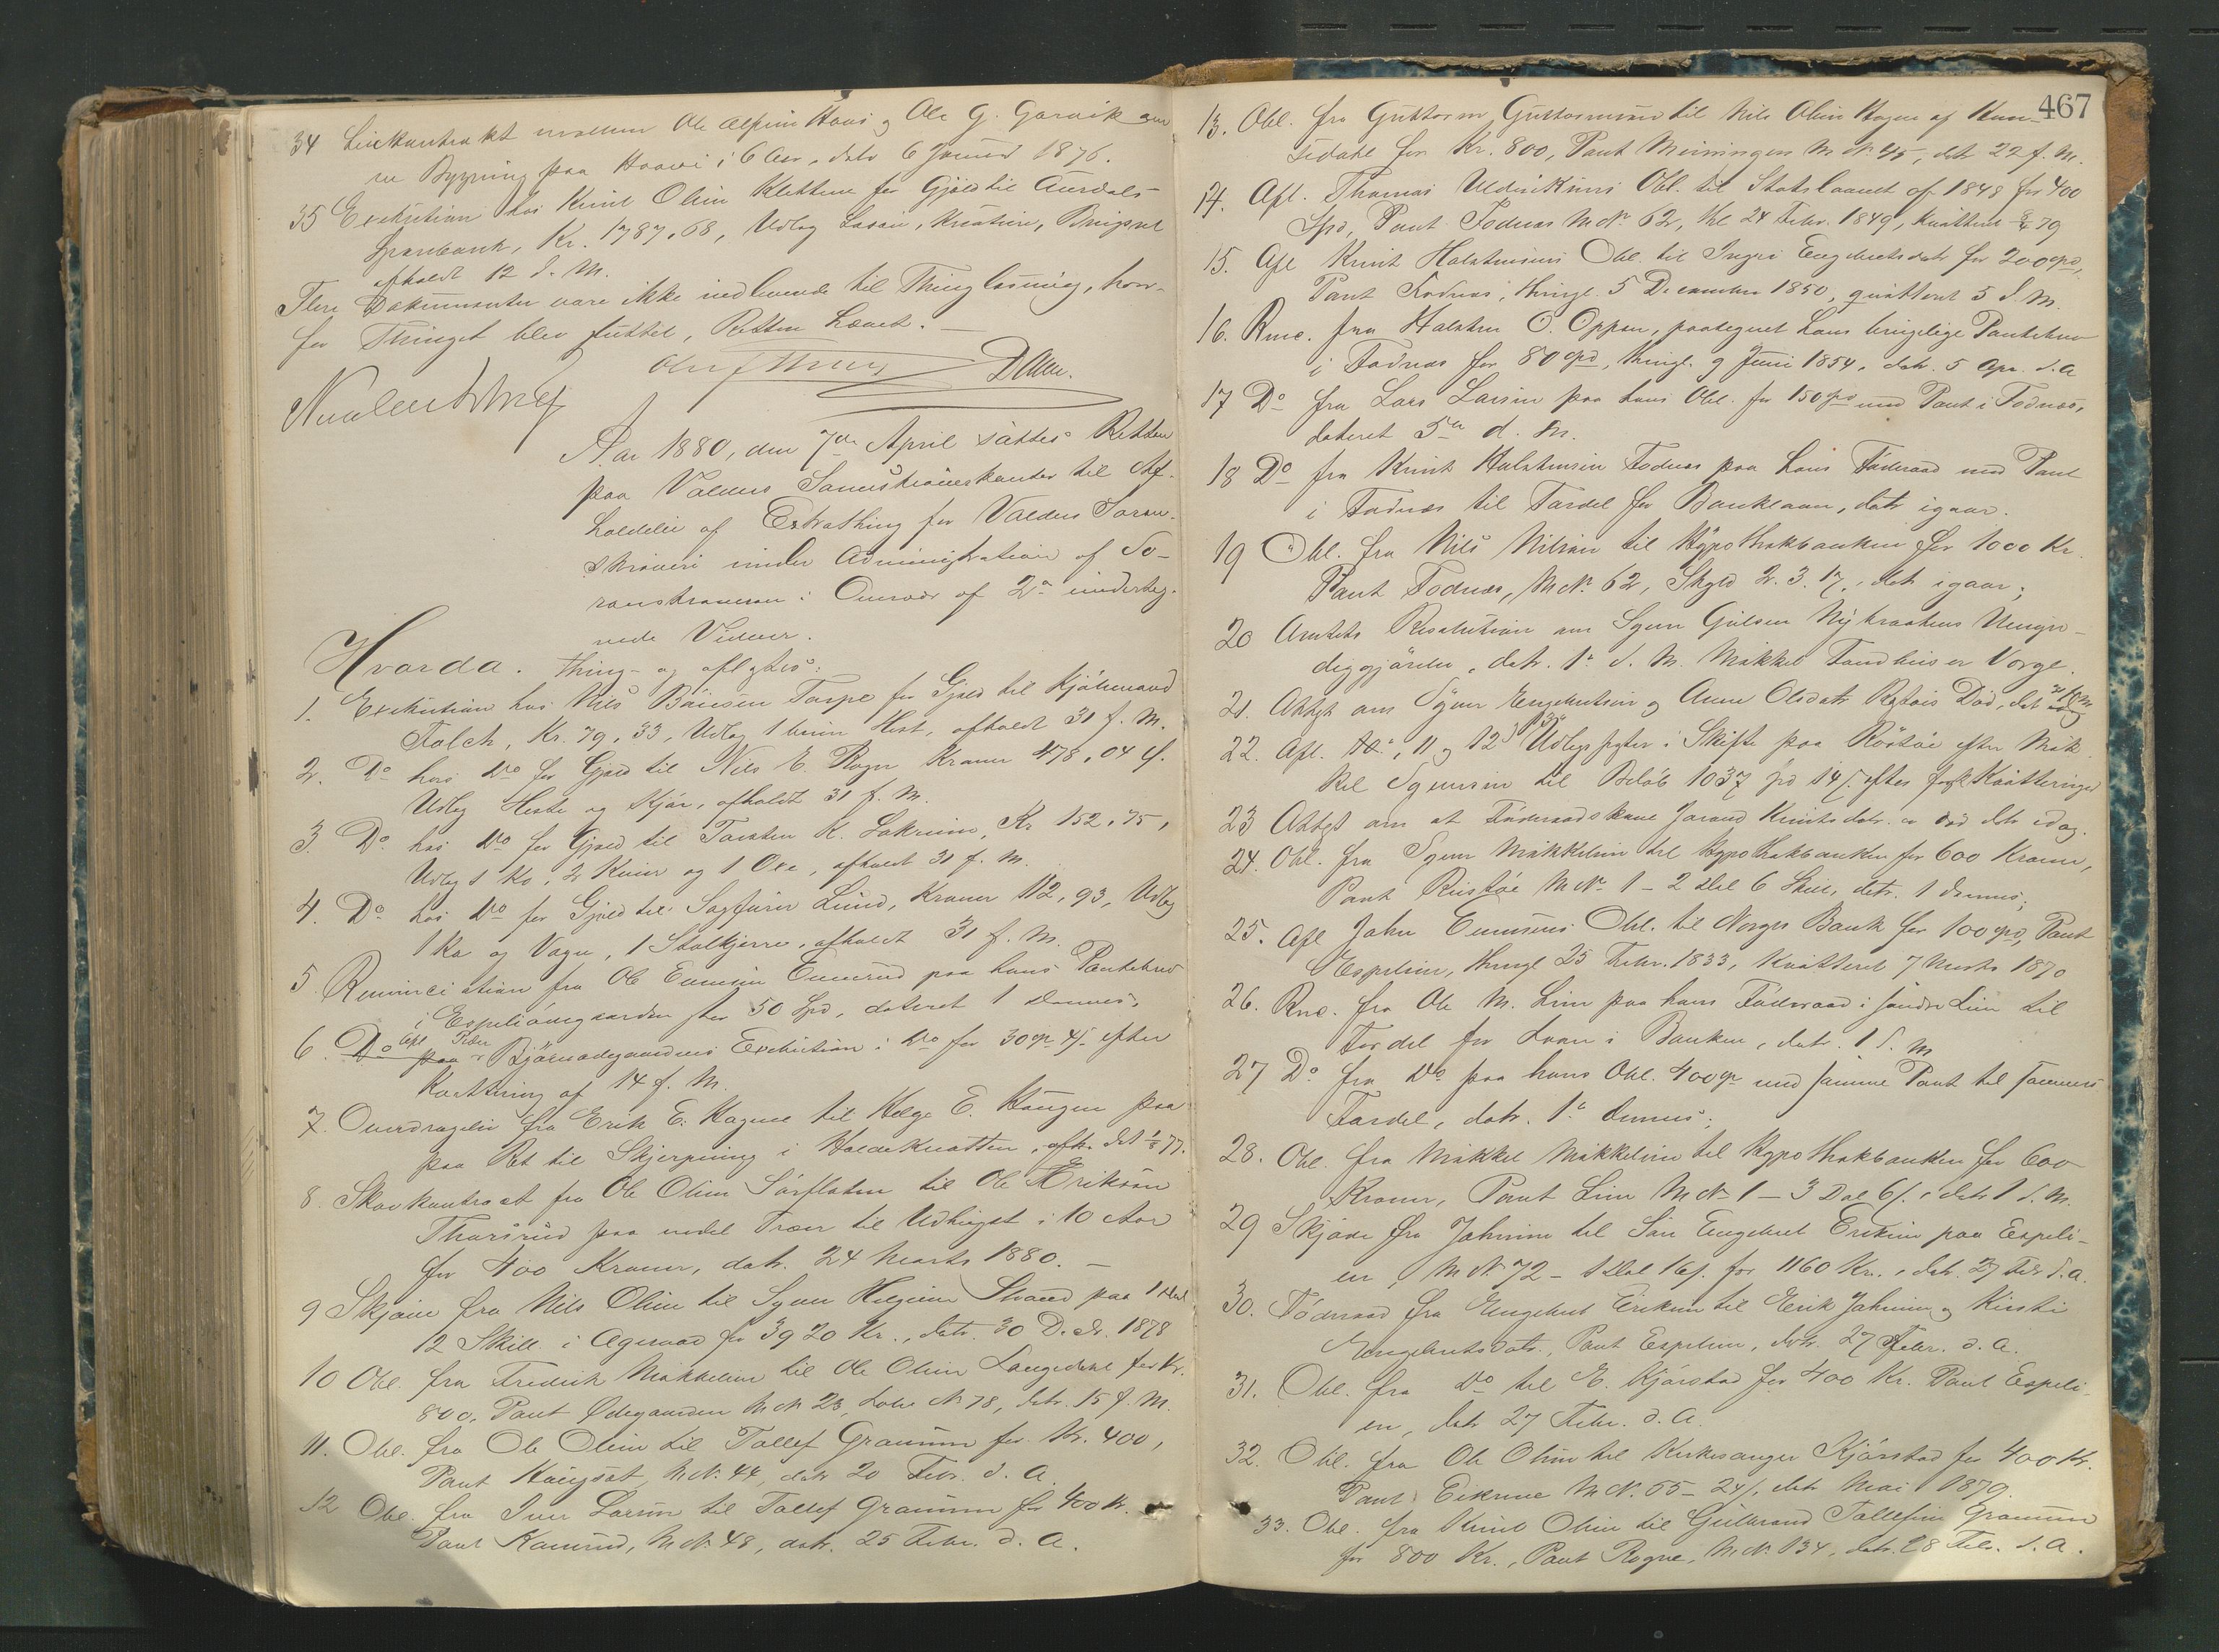 34 Leiekontrakt mellem Ole Elfsen Haavi og Ole G. Garvik om
en Bygning paa Haavi i 6 Aar, datr 6 Januar 1876.
35 Exekution hos Knut Olsen Klattene for Gjæld til Aurdals
Sparebank, Kr. 1787,68, Udlæg Løsøre, Kreature, Brugsret
afholdt 12 d. M.
Flere Dokumenter vare ikke indleverede til Thinglæsning, hvor-
for Thinget blev sluttet, Retten hævet. —
Aar 1880, den 7de April sattes Retten
paa Valders Sorenskriverkontor til Af-
holdelse af Extrathing for Valders Soren-
skriveri under Administration af So-
renskriveren: Overvær af 2de underteg-
nede Vidner.
Hvorda. thing- og aflystes:
1. Exekution hos Nils Baardsen Tarpe for Gjæld til Kjøbmand
Falch, Kr. 79,33, Udlæg 1 brun Hest, afholdt 31 f. M.
2. Do hos Do for Gjæld til Nils E. Rogn Kroner 478,04
Udlæg Heste og Kjør, afholdt 31 f. M.
3. Do hos Do for Gjæld til Torsten K. Lokreim, Kr 152,75,
Udlæg 1 Ko, 2 Kvier og 1 Oxe, afholdt 31 f. M.
4. Do hos Do for Gjæld til Sagfører Lund, Kroner 112,93, Udlæg
1 Ko og Vogn, 1 Stolkjerre, afholdt 31 f. M.
5 Renunciation fra Ole Evensen Evenrud paa hans Pantebrev
i Espeliøiegaarden stor 50 Spd, dateret 1 dennes.
6. Do paa Afl. Bjørnødegaardens Exekution i Do for 30 4/- efter
Kvittering af 14 f. M.
7. Overdragelse fra Erik E. Hagene til Helge E. Haugen paa
paa Ret til Skjerpning i Haldeknatten, 77.
8. Skovkontract fra Ole Olsen Sørflaten til Ole Eriksøn
Thorsrud paa endel Træer til Udhugst i 10 Aar
for 400 Kroner, datr. 24 Marts 1880. —
9 Skjøde fra Nils Olsen til Syver Helgesen Strand paa 1 Dal
12 Skill i Ageraad for 3920 Kr., datr. 30 Decbr. 1878
10 Obl. fra Fredrik Mikkelsen til Ole Olsen Langedahl for Kr.
800, Pant Ødegaarden M. No 23, Lobe No 78, datr. 15 f. M.
11. Obl. fra Ole Olsen til Tollef Granum for Kr. 400,
Pant Haugset, M. No. 44, datr 20 Febr. d. A.
12 Obl. fra Iver Larsen til Tollef Granum for 400 Kr.
Pant Kamrud, M. No 48, datr. 25 Febr. d. A.
467
13. Obl. fra Guttorm Guttormsen til Nils Olsen Hagen af
for Kr. 800, Pant Meiningen M. No 45, datr 22 f. M.
14. Afl. Thomas Uldriksens Obl. til Statslaanet af 1848 for 400
Spd, Pant Fodnæs M No. 62, thl 24 Febr. 1849, kvitteret 79
15. Afl Knut Halstensens Obl. til Ingri Engebretsdatr for 200 Spd,
Pant Fodnæs, thingl. 5 December 1850, qvitteret 5 d. M.
16. Renc. fra Halsten O. Oppen, paategnet hans tinglige Pantebrev
i Fodnæs for 80 Spd, thingl. 9 Juni 1854, datr. 5 Apr. d. A
17 Do fra Lars Larsen paa hans Obl. for 150 Spd med Pant i Fodnæs,
dateret 5te d. M.
18 Do fra Knut Halstensen Fodnæs paa hans Føderaad med Pant
i Fodnæs til Fordel for Banklaan, datr igaar.
19 Obl. fra Nils Nilsen til Hypothekbanken for 1000 Kr.
Pant Fodnæs, M No. 62, Skyld 2. 3. 17, datr igaar;
20 Amtets Resolution om Syver Gulsen Nybraatens Umyn-
diggjørelse, datr. 1te d. M. Mikkel Fondhus er Værge.
21. Attest om Syver Engebretsen og Anne Olsdatr Røstøes Død, dat idag
22. Afl. 10de, 11 og 12 Udlægsposter i Skifte paa Røstøe efter Mik-
kel Syversen til Beløb 1037 Spd 14/. efter Kvitteringer
23 Attest om at Føderaadskone Jorand Knutsdatr. er død datr idag.
24. Obl. fra Syver Mikkelsen til Hypothekbanken for 600 Kroner,
Pant Røstøe M No. 1 - 2 dal 6 Skill, datr. 1 dennes;
25. Afl John Evensens Obl. til Norges Bank for 100 Spd, Pant
Espelien, thingl 25 Febr. 1833, kvitteret 7 Marts 1870
26. Renc. fra Ole M. Lien paa hans Føderaad i søndre Lien til
Fordel for Laan i Banken, datr. 1 d. M
27 Do fra Do paa hans Obl. 400 Spd med samme Pant til sammes
Fordel, datr. 1te dennes;
28. Obl. fra Mikkel Mikkelsen til Hypothekbanken for 600
Kroner, Pant Lien M No 1 - 3 Dal 6/., datr 1 d. M.
29 Skjøde fra Johnsen til Søn Engebret Eriksen paa Espeli-
en, M No 72 - 1 dal 16/. for 1160 Kr., datr. 27 Febr d. A.
30. Føderaad fra Engebret Eriksen til Erik Johnsen og Kirsti
Engebretsdatr., Pant Espelien, datr. 27 Febr. d. A.
31. Obl. fra Do til E. Kjørstad for 400 Kr. Pant Espeli-
en, datr 27 Febr. d. A.
32. Obl. fra Ole Olsen til Kirkesanger Kjørstad for 400 Kr.
Pant Eikrene M No. 65 - 24/, datr Mai 1879.
33. Obl. fra Knut Olsen til Gulbrand Tollefsen Granum
for 800 Kr., Pant Rogne, M. No. 134, datr. 28 Febr. d. A.